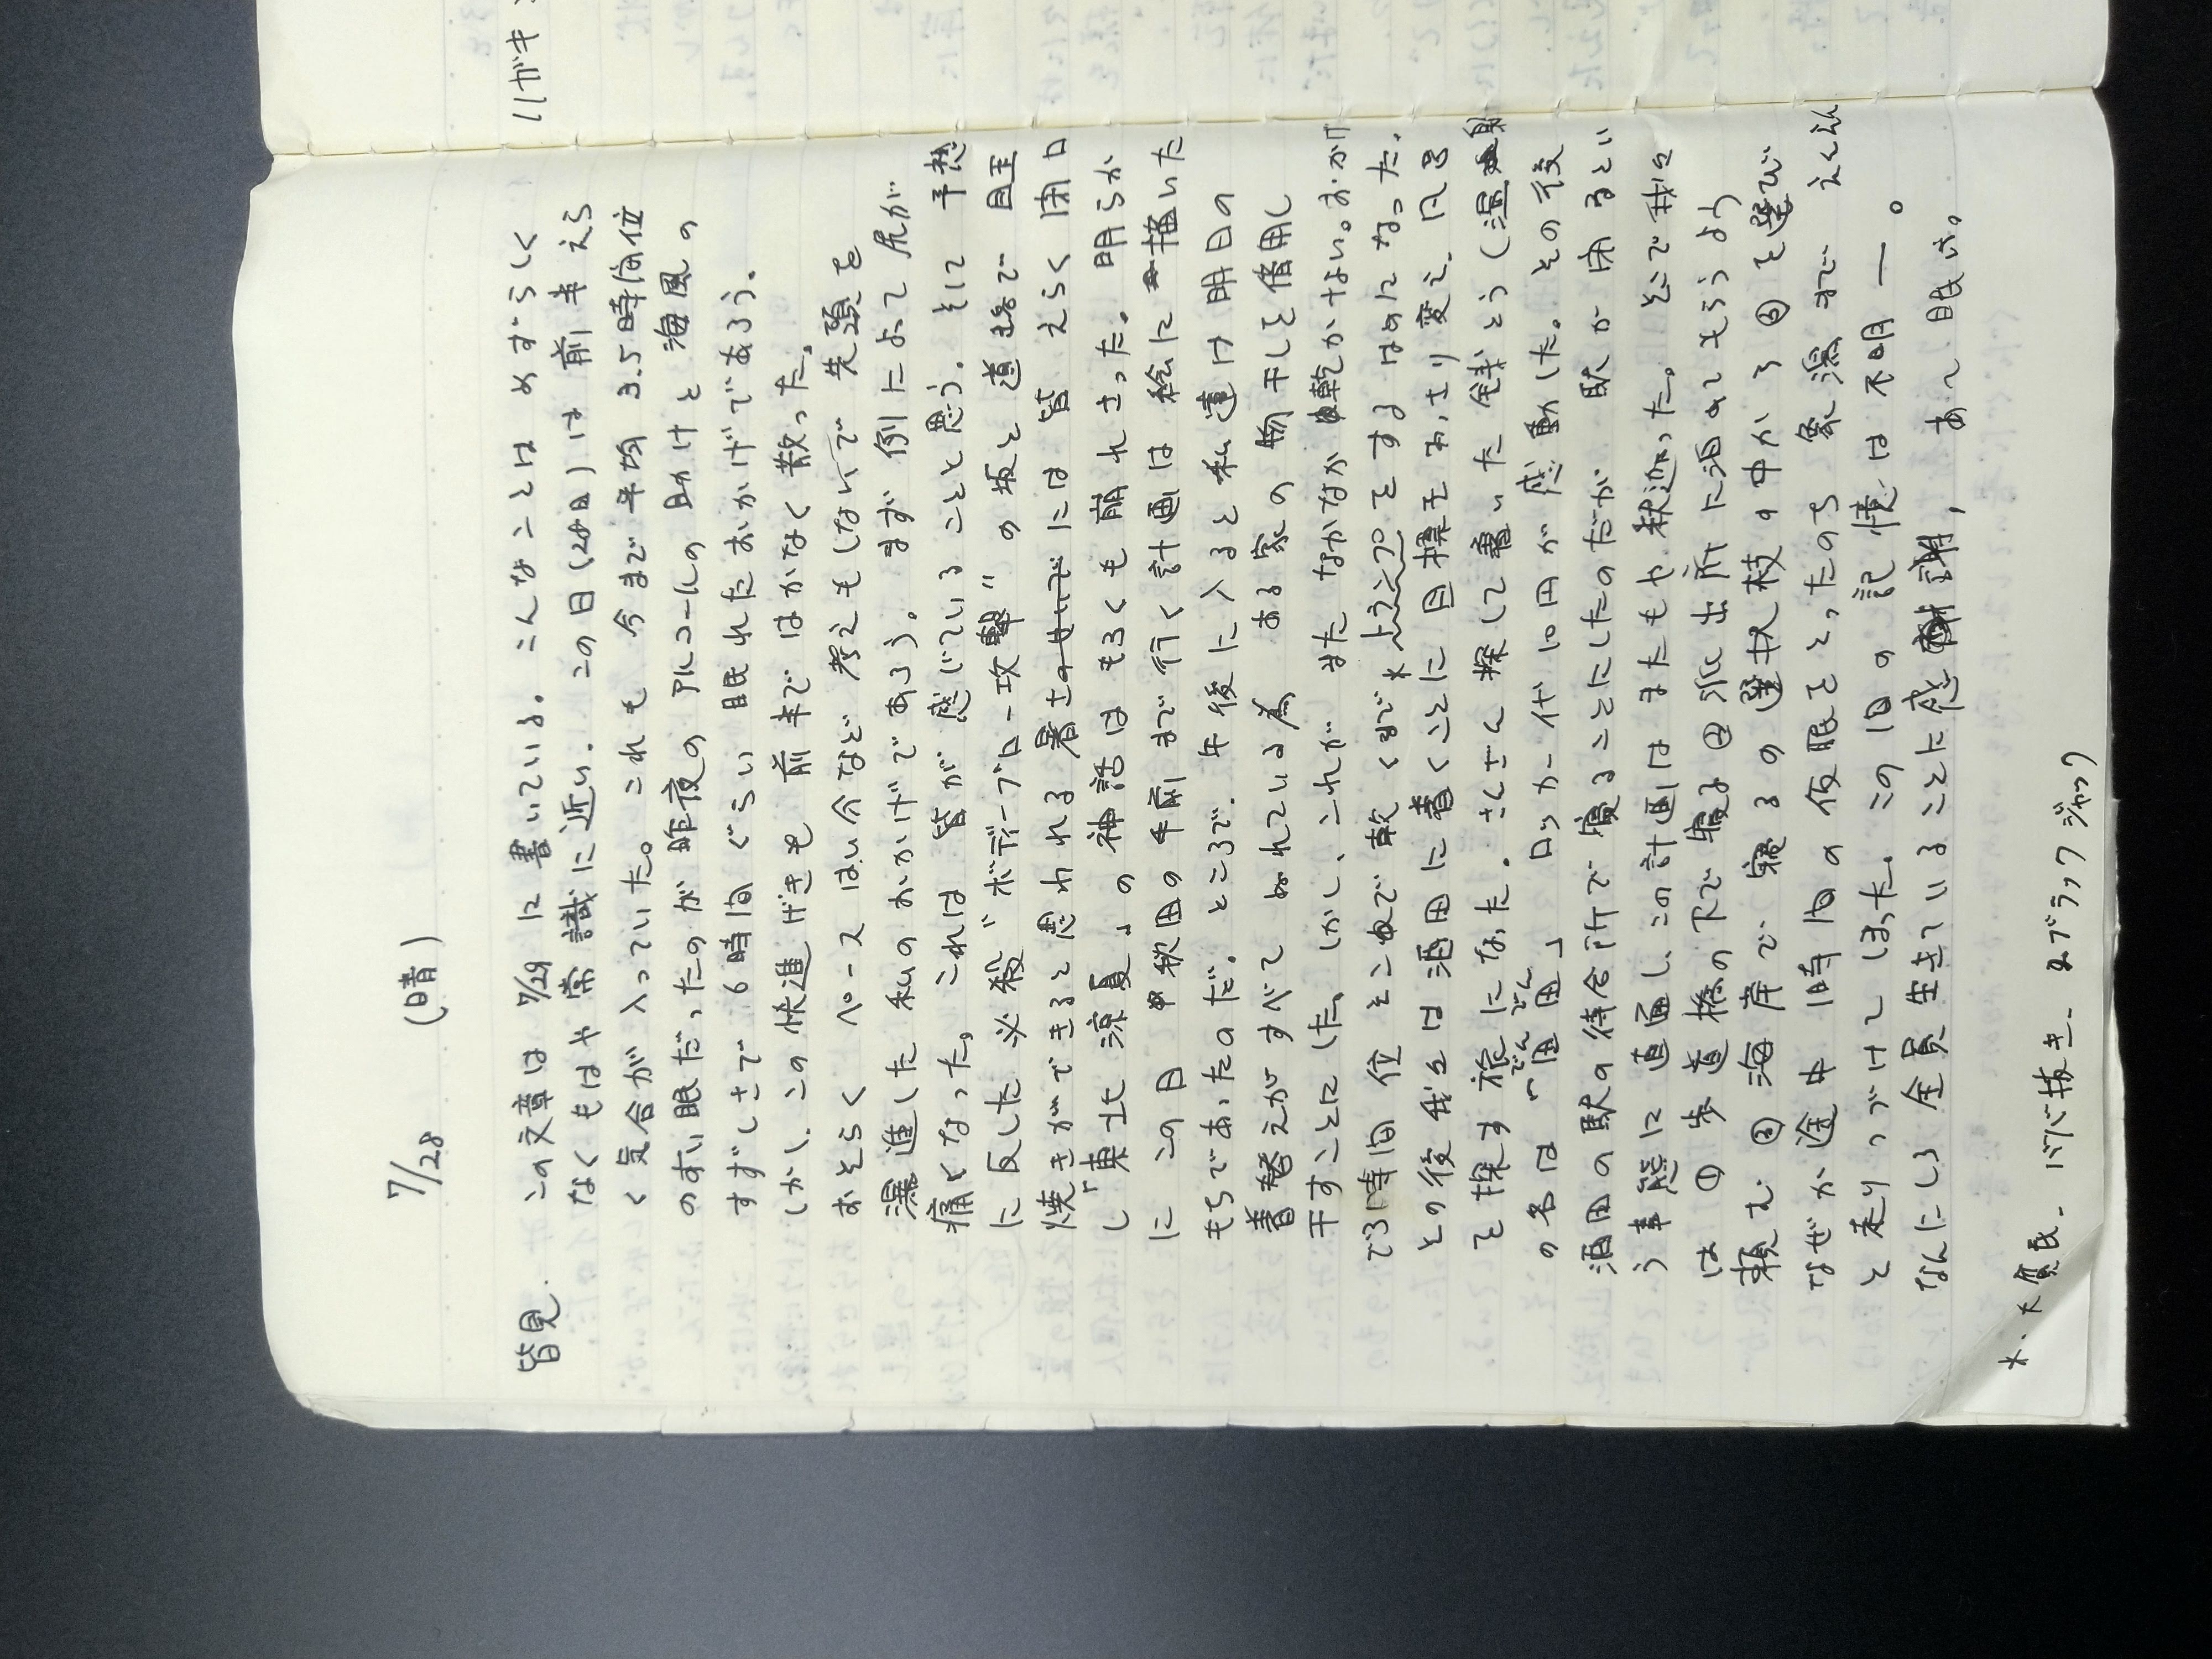 7/28 (晴)
皆見 この文章は 7/29 に書いている。こんなことは めずらしく
なくもはや常識に近い。この日(28日)は 前半 えら
く気合が入っていた。これも今まで平均3.5時間位
のすい眠だったのが昨夜のアルコールの助けと海風の
すずしさで6時間ぐらい眠れたおかげであろう。
しかし、この快進げきも前半ではかなく散った。
おそらくペースはい分など考えもしないで先頭を
爆進した私のおかげであろう。まず例によって尻が
痛くなった。これは皆が感じていることと思う。そして予想
に反した必殺〝ボディーブロー攻撃〟の坂と道路で目玉
焼きができると思われる暑さのせいでには皆えらく閉口
し「東北涼夏」の神話はもろくも崩れさった。明らか
にこの日秋田の手前まで行く計画は絵に描いた
もちであったのだ。ところで、午後に入ると私達は明日の
着替えがすべてぬれている為ある家の物干しを借用し
干すことにした。しかし、これがまたなかなか乾かない。おかげ
で3時間位そこで乾くまで*大貧民をするはめになった。
その後我々は酒田に着くことに目標をあっさり変え、风呂
を探す旅になった。さんざん探して着いた銭とう(温泉)
の名は「田田」ロッカー代10円が感動した。その後
でんでん
酒田の駅の待合所で寝ることにしたのだが駅が閉るとい
う事態に直面し、この計画はまたもや却下った。そこで我々
は①歩道橋の下で寝る②派出所に泊めてもらうよう
頼む③海岸で寝るの選択枝の中から③を選び
なぜか途中1時間の仮眠をとったのち象潟までえんえん
と走りつづけてしまった。この間の記憶は不明―。
なんにしろ全員生きていることに感謝,あ〜眠い。
*・大貧民、ババ抜き、ブラックジャック
ハガキ